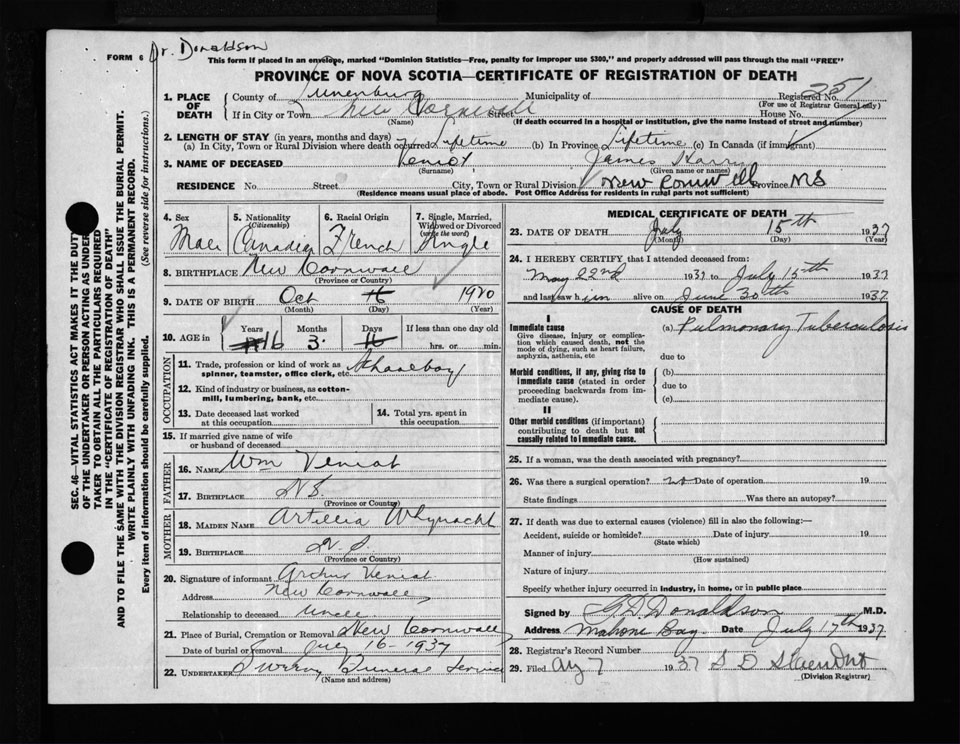 FORM 6
Dr. Donaldson
This form if placed in an envelope, marked "Dominion Statistics—Free, penalty for improper use $300," and properly addressed will pass through the mail "FREE"
PROVINCE OF NOVA SCOTIA—CERTIFICATE OF REGISTRATION OF DEATH
1. PLACE OF DEATH
County of Lunenburg Municipality of Registered No. 251
(For use of Registrar General only)
If in City or Town New Cornwall Street House No.
(Name) (If death occurred in a hospital or institution, give the name instead of street and number)
2. LENGTH OF STAY (in years, months and days)
(a) In City, Town or Rural Division where death occurred Lifetime (b) In Province Lifetime (c) In Canada (if immigrant)
3. NAME OF DECEASED Veniot James Harry
(Surname) (Given name or names)
RESIDENCE No. Street City, Town or Rural Division New Cornwall Province NS
(Residence means usual place of abode. Post Office Address for residents in rural parts not sufficient)
4. Sex Male
5. Nationality (Citizenship) Canadian
6. Racial Origin French
7. Single, Married, Widowed or Divorced (write the word) Single
8. BIRTHPLACE New Cornwall
(Province or Country)
9. DATE OF BIRTH Oct 16 1920
(Month) (Day) (Year)
10. AGE in Years 16 Months 3 Days 16 If less than one day old hrs. or min.
OCCUPATION
11. Trade, profession or kind of work as spinner, teamster, office clerk, etc. Schoolboy
12. Kind of industry or business, as cotton-mill, lumbering, bank, etc.
13. Date deceased last worked at this occupation
14. Total yrs. spent in this occupation
15. If married give name of wife or husband of deceased
FATHER
16. NAME Wm Veniot
17. BIRTHPLACE N.S.
(Province or Country)
MOTHER
18. MAIDEN NAME Artillia Whynacht
19. BIRTHPLACE N.S.
(Province or Country)
20. Signature of informant Archie Veniot
Address New Cornwall
Relationship to deceased Uncle
21. Place of Burial, Cremation or Removal New Cornwall
Date of burial or removal July 16-1937
22. UNDERTAKER Sweeny Funeral Service
(Name and address)
MEDICAL CERTIFICATE OF DEATH
23. DATE OF DEATH July 15th 1937
(Month) (Day) (Year)
24. I HEREBY CERTIFY that I attended deceased from:
May 22nd 1937 to July 15th 1937
and last saw him alive on June 30th 1937
CAUSE OF DEATH
I
Immediate cause
Give disease, injury or complication which caused death, not the mode of dying, such as heart failure, asphyxia, asthenia, etc
(a) Pulmonary Tuberculosis
due to
Morbid conditions, if any, giving rise to immediate cause (stated in order proceeding backwards from immediate cause).
(b)
due to
(c)
II
Other morbid conditions (if important) contributing to death but not causally related to immediate cause.
25. If a woman, was the death associated with pregnancy?
26. Was there a surgical operation? no Date of operation 19
State findings Was there an autopsy?
27. If death was due to external causes (violence) fill in also the following:—
Accident, suicide or homicide? Date of injury 19
(State which)
Manner of injury
(How sustained)
Nature of injury
Specify whether injury occurred in industry, in home, or in public place
Signed by Donaldson M.D.
Address Mahone Bay Date July 17th 1937
28. Registrar's Record Number
29. Filed Aug 7 1937 S D
(Division Registrar)
SEC. 46—VITAL STATISTICS ACT MAKES IT THE DUTY
OF THE UNDERTAKER OR PERSON ACTING AS UNDER-
TAKER TO OBTAIN ALL THE PARTICULARS REQUIRED
IN THE "CERTIFICATE OF REGISTRATION OF DEATH"
AND TO FILE THE SAME WITH THE DIVISION REGISTRAR WHO SHALL ISSUE THE BURIAL PERMIT.
WRITE PLAINLY WITH UNFADING INK. THIS IS A PERMANENT RECORD.
Every item of information should be carefully supplied. (See reverse side for instructions.)